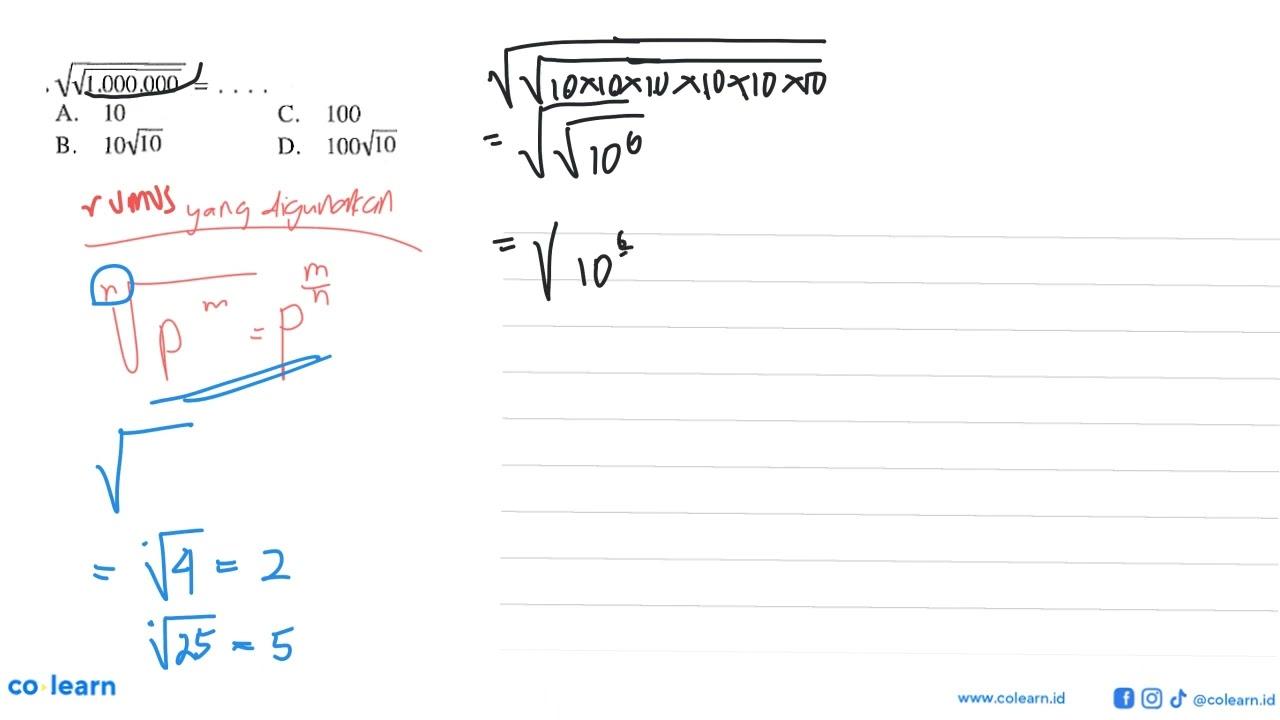 . √√1.000.000 = . . . .
A. 10 C. 100
B. 10√10 D. 100√10
rumus yang digunakan
ⁿ√p^m = p^(m/n)
√
= √4 = 2
√25 = 5
√√10×10×10×10×10×10
= √√10^6
= √10^6
co learn
www.colearn.id
@colearn.id